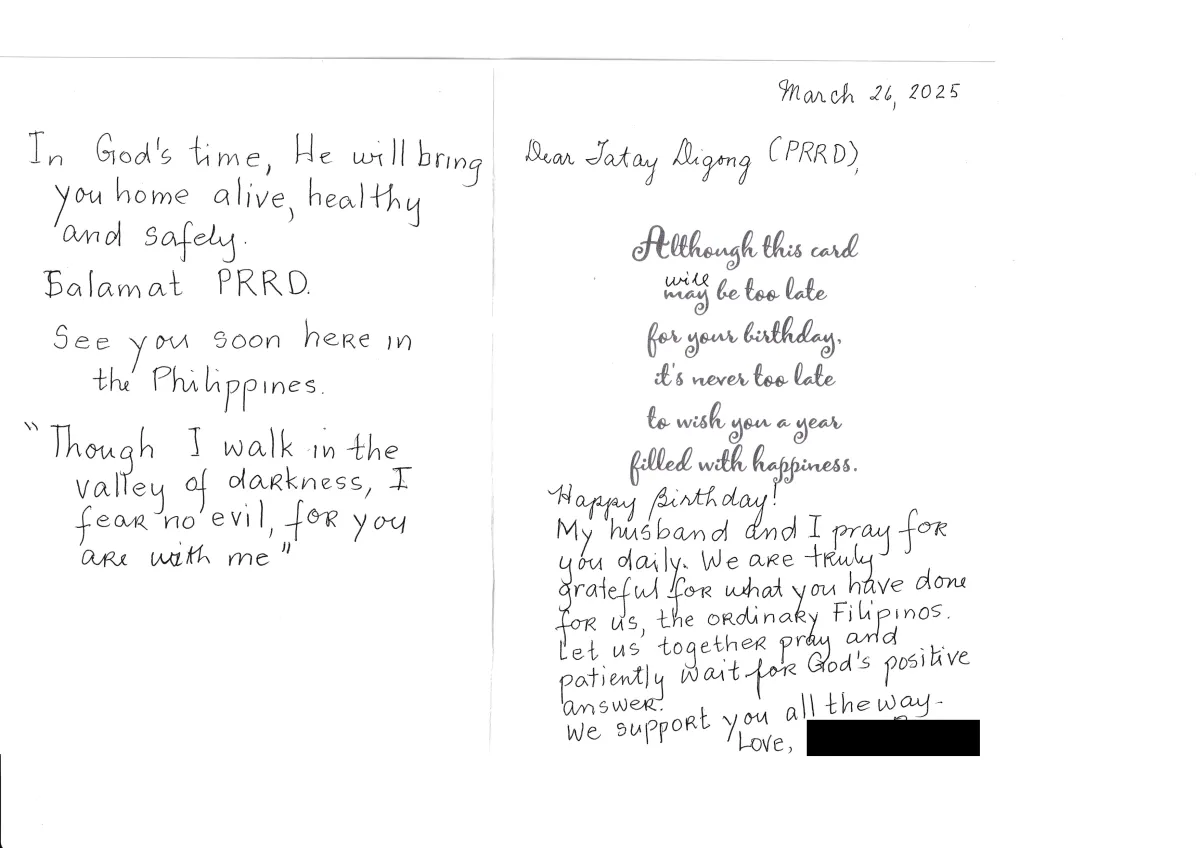 In God's time, He will bring
you home alive, healthy
and safely.
Salamat PRRD.
See you soon here in
the Philippines.
"Though I walk in the
valley of darkness, I
fear no evil, for you
are with me"
March 26, 2025
Dear Tatay Digong (PRRD),
Although this card
will
may be too late
for your birthday,
it's never too late
to wish you a year
filled with happiness.
Happy Birthday!
My husband and I pray for
you daily. We are truly
grateful for what you have done
for us, the ordinary Filipinos.
Let us together pray and
patiently wait for God's positive
answer.
We support you all the way-
Love,